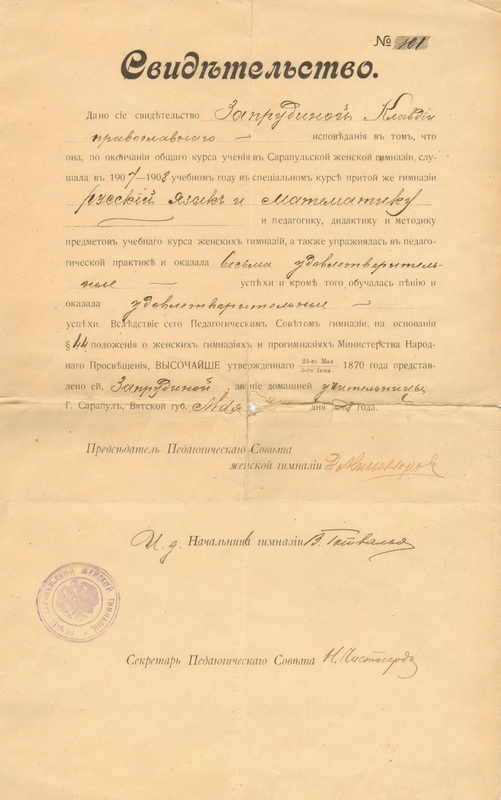 № 101
Свидѣтельство.
Дано сіе свидѣтельство Запрудиной Клавдіи
православнаго исповѣданія въ томъ, что
она, по окончаніи общаго курса ученія въ Сарапульской женской гимназіи, слу-
шала въ 1907—1908 учебномъ году въ спеціальномъ курсѣ при той же гимназіи
русскій языкъ и математику
и педагогику, дидактику и методику
предметовъ учебнаго курса женскихъ гимназій, а также упражнялась въ педаго-
гической практикѣ и оказала весьма удовлетворитель-
ные успѣхи и кромѣ того обучалась пѣнію и
оказала удовлетворительные
успѣхи. Вслѣдствіе сего Педагогическимъ Совѣтомъ гимназіи, на основаніи
§ 44 положенія о женскихъ гимназіяхъ и прогимназіяхъ Министерства Народ-
наго Просвѣщенія, ВЫСОЧАЙШЕ утвержденнаго 24-го Мая 1870 года представ-
лено ей, Запрудиной, званіе домашней учительницы.
Г. Сарапулъ, Вятской губ. Мая дня года.
Предсѣдатель Педагогическаго Совѣта
женской гимназіи
И. д. Начальника гимназіи В. Готвальд
Секретарь Педагогическаго Совѣта